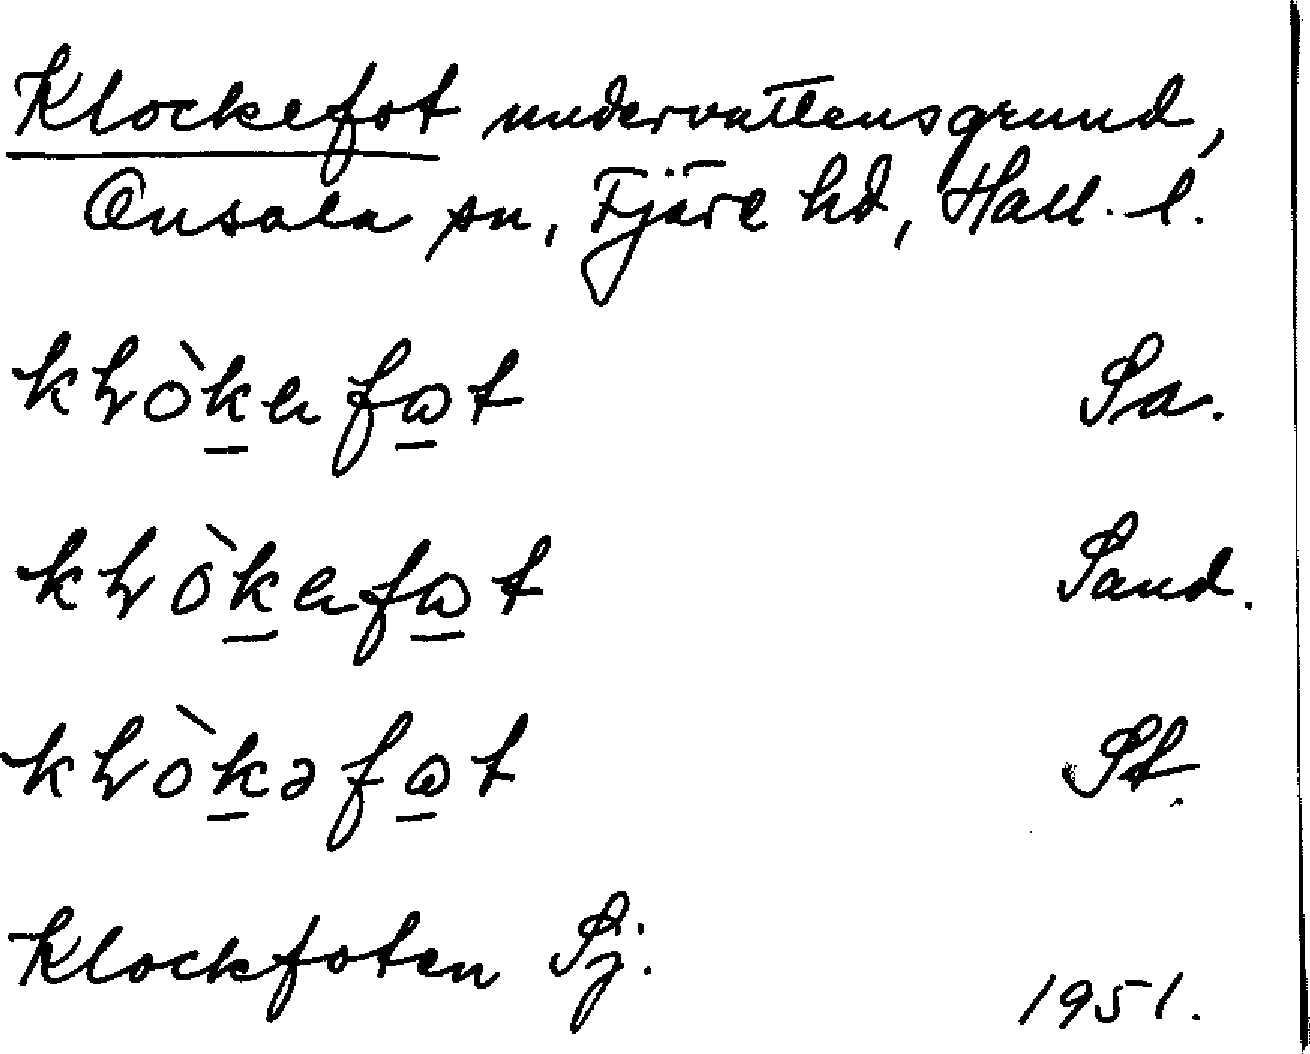 Klockefot undervattensgrund,
Onsala sn, Fjäre hd, Hall. l.
kɫòkafɷt Sa.
kɫòkafɷt Sand.
kɫòkəfɷt St.
Klockfoten Sj.
1951.